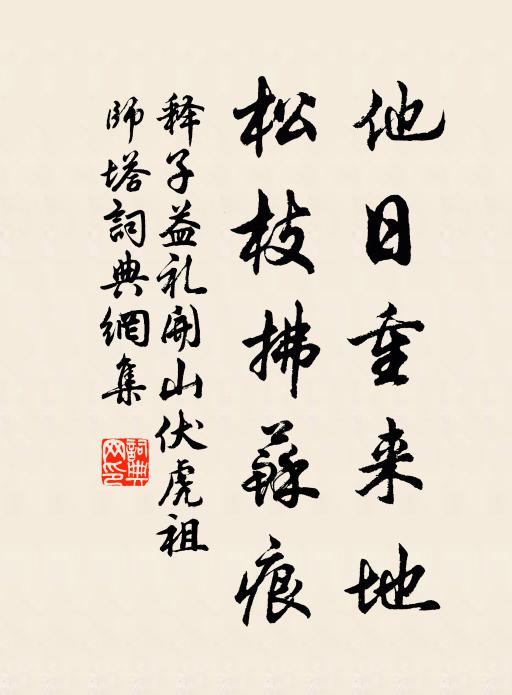 他日重来地
松枝拂蘇痕
释子益礼開山伏虎祖
師塔詞典網集
詞典
网印